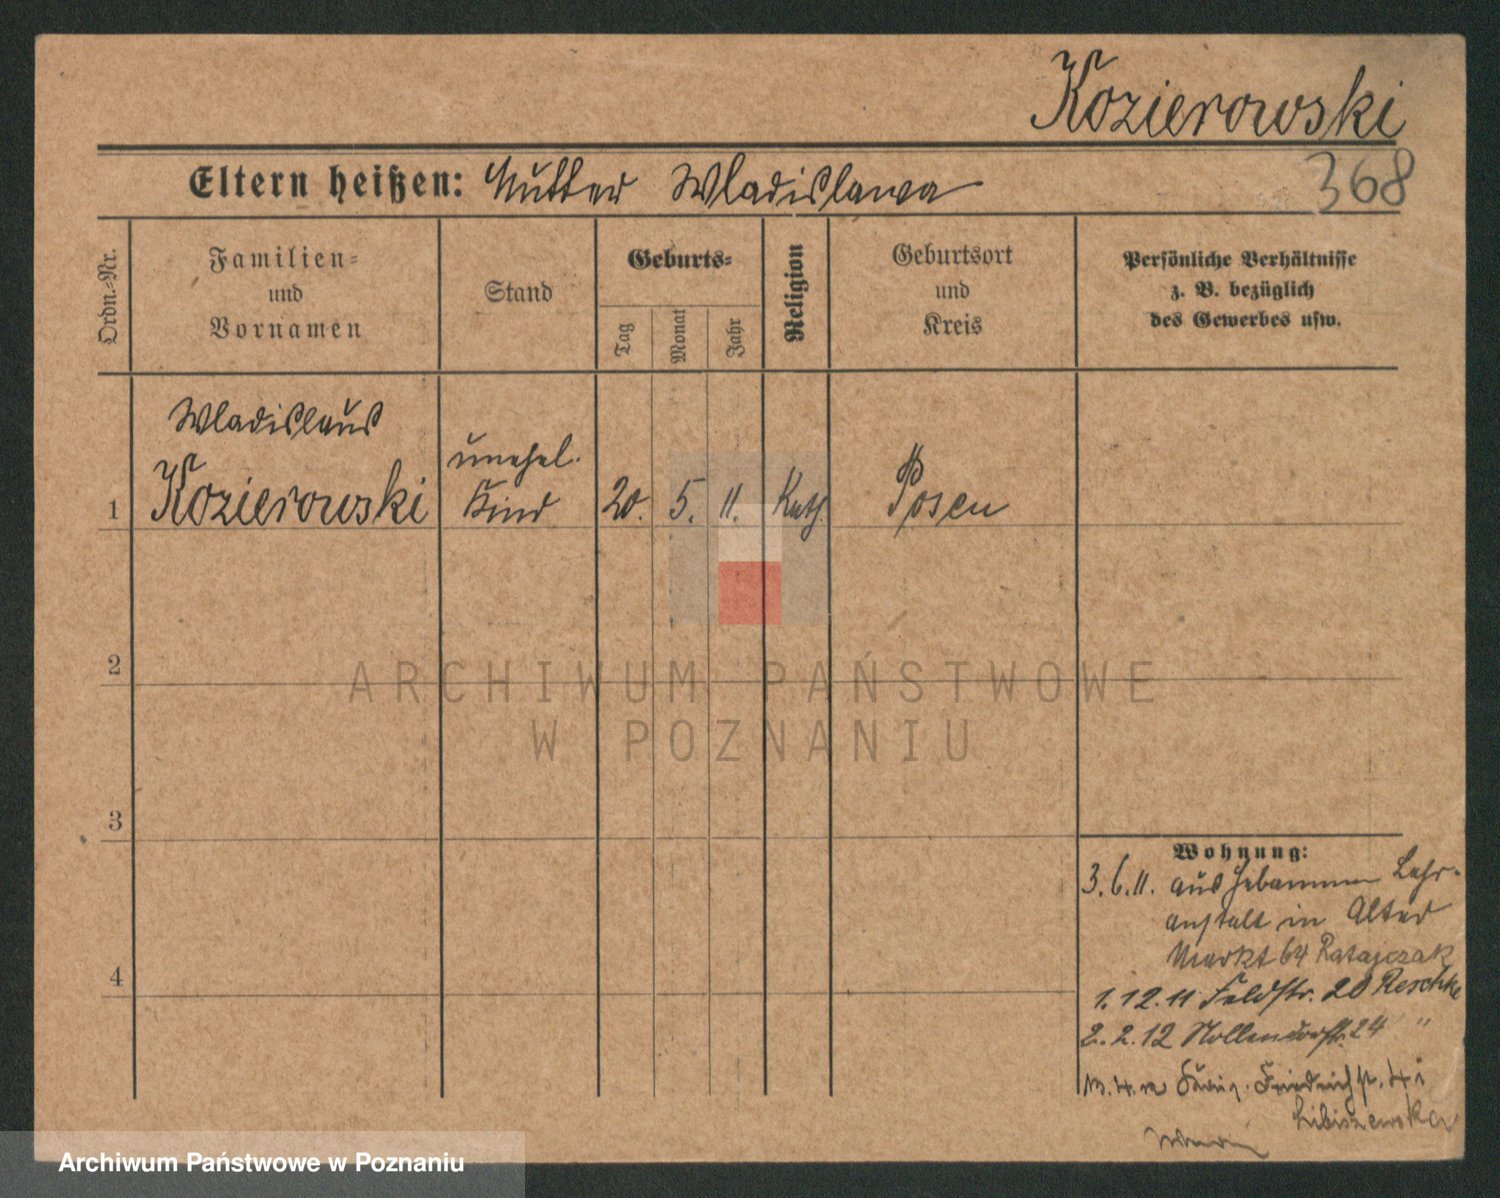 Kozierowski
368
Eltern heißen: Mutter Wladislawa
Ordn.-Nr.
Familien-
und
Vornamen
Stand
Geburts-
Tag
Monat
Jahr
Religion
Geburtsort
und
Kreis
Persönliche Verhältnisse
z. B. bezüglich
des Gewerbes usw.
Wladislaus
unehel.
1 Kozierowski Kind 20. 5. 11. Kath. Posen
2
ARCHIWUM PAŃSTWOWE
W POZNANIU
3
Wohnung:
3.6.11. aus Hebammen Lehr-
anstalt in Alter
Markt 64 Ratajczak
4
1.12.11 Feldstr. 20 Reschke
2.2.12 Nollendorfstr. 24 "
Friedrichst.
Libiszewska
Archiwum Państwowe w Poznaniu